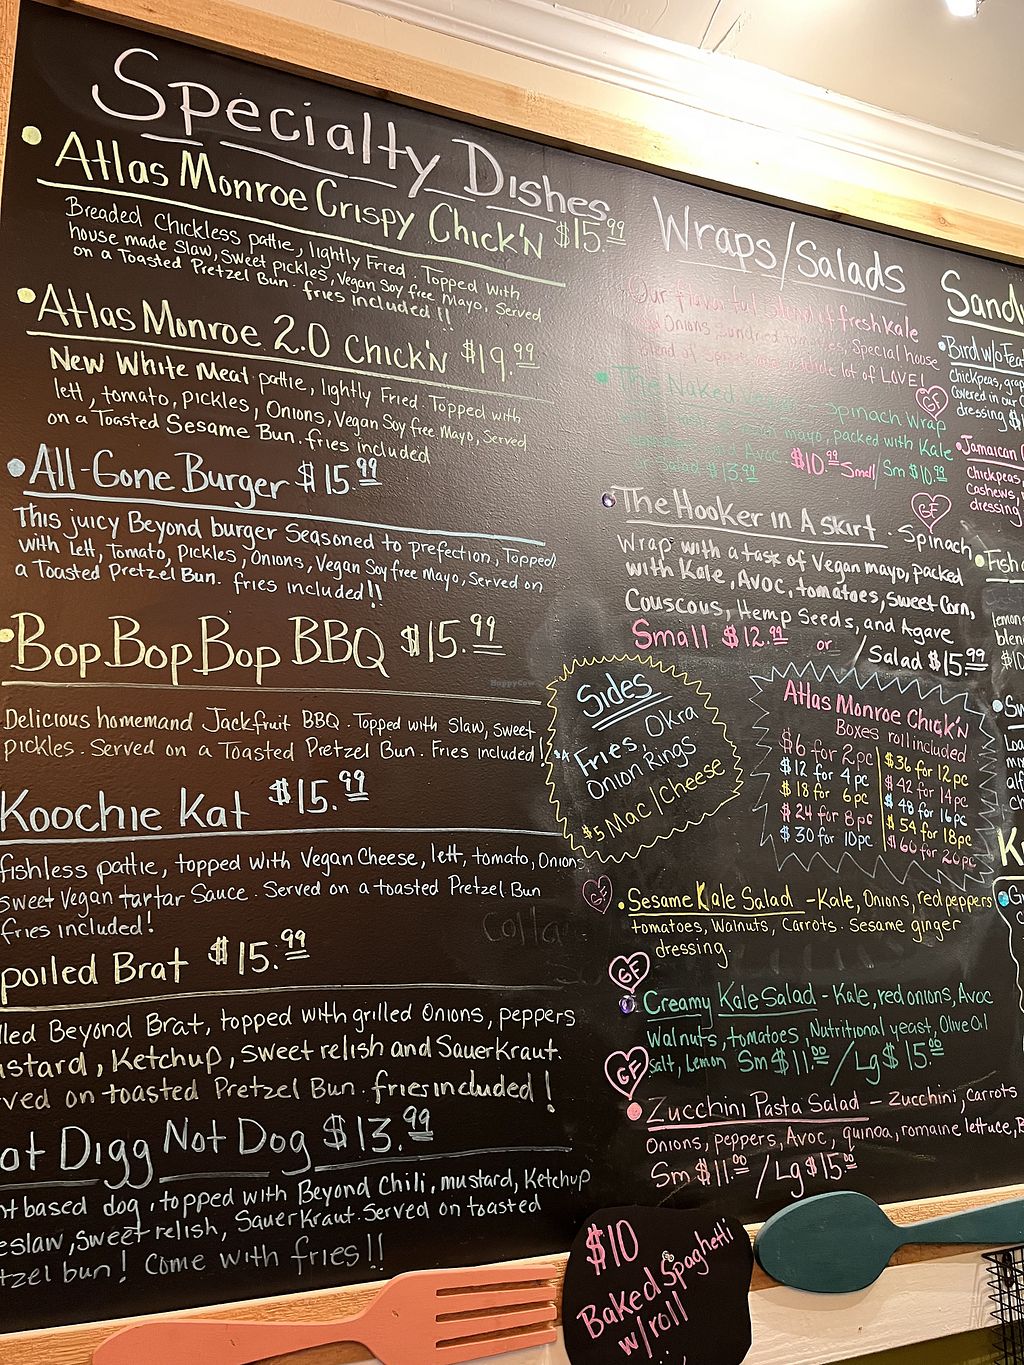 Specialty Dishes
Atlas Monroe Crispy Chick'N $15.99
Breaded Chickless pattie, lightly Fried. Topped with
house made Slaw, Sweet pickles, Vegan Soy free Mayo, Served
on a Toasted Pretzel Bun. fries included!!
Atlas Monroe 2.0 Chick'n $19.99
New White Meat pattie, lightly Fried. Topped with
lett, tomato, pickles, Onions, Vegan Soy free Mayo, Served
on a Toasted Sesame Bun. fries included
All-Gone Burger $15.99
This juicy Beyond burger Seasoned to prefection, Topped
with Lett, Tomato, pickles, Onions, Vegan Soy free Mayo, Served on
a Toasted Pretzel Bun. fries included!!
Bop Bop Bop BBQ $15.99
Delicious homemand Jackfruit BBQ. Topped with Slaw, sweet
pickles. Served on a Toasted Pretzel Bun. Fries included!!
Koochie Kat $15.99
fishless pattie, topped with Vegan Cheese, lett, tomato, Onions
sweet Vegan tartar Sauce. Served on a toasted Pretzel Bun
fries included!
poiled Brat $15.99
lled Beyond Brat, topped with grilled Onions, peppers
ustard, Ketchup, sweet relish and SauerKraut.
rved on toasted Pretzel Bun. fries included!
ot Digg Not Dog $13.99
nt based dog, topped with Beyond Chili, mustard, Ketchup
eslaw, sweet relish, SauerKraut. Served on toasted
tzel bun! Come with fries!!
Wraps/Salads
Our flavorful blend of fresh Kale
Onions, Sundried tomatoes, Special house
blend of whole lot of LOVE!
GF
The Naked Spinach Wrap
mayo, packed with Kale
Avoc $10.99 Small / Sm $10.99
Salad $13.99
GF
The Hooker in A skirt. Spinach
Wrap with a task of Vegan mayo, packed
with Kale, Avoc, tomatoes, Sweet Corn,
Couscous, Hemp Seeds, and Agave
Small $12.99 or / Salad $15.99
Sides
Fries, Okra
Onion Rings
$5 Mac/Cheese
Atlas Monroe Chick'n
Boxes roll included
$6 for 2pc $36 for 12pc
$12 for 4pc $42 for 14pc
$18 for 6pc $48 for 16pc
$24 for 8pc $54 for 18pc
$30 for 10pc $60 for 20pc
GF
Sesame Kale Salad - Kale, Onions, red peppers
tomatoes, Walnuts, Carrots. Sesame ginger
dressing.
GF
Creamy Kale Salad - Kale, red onions, Avoc
Walnuts, tomatoes, Nutritional yeast, Olive Oil
Salt, Lemon Sm $11.00 / Lg $15.00
GF
Zucchini Pasta Salad - Zucchini, Carrots
Onions, peppers, Avoc, quinoa, romaine lettuce, B
Sm $11.00 / Lg $15.00
Sandw
Bird w/o Fea
Chickpeas, grap
Covered in our
dressing
Jamaican
Chickpeas,
Cashews,
dressing
Fish
lemon
blen
$10
Sw
Loa
$10
Baked Spaghetti
w/roll
HappyCow